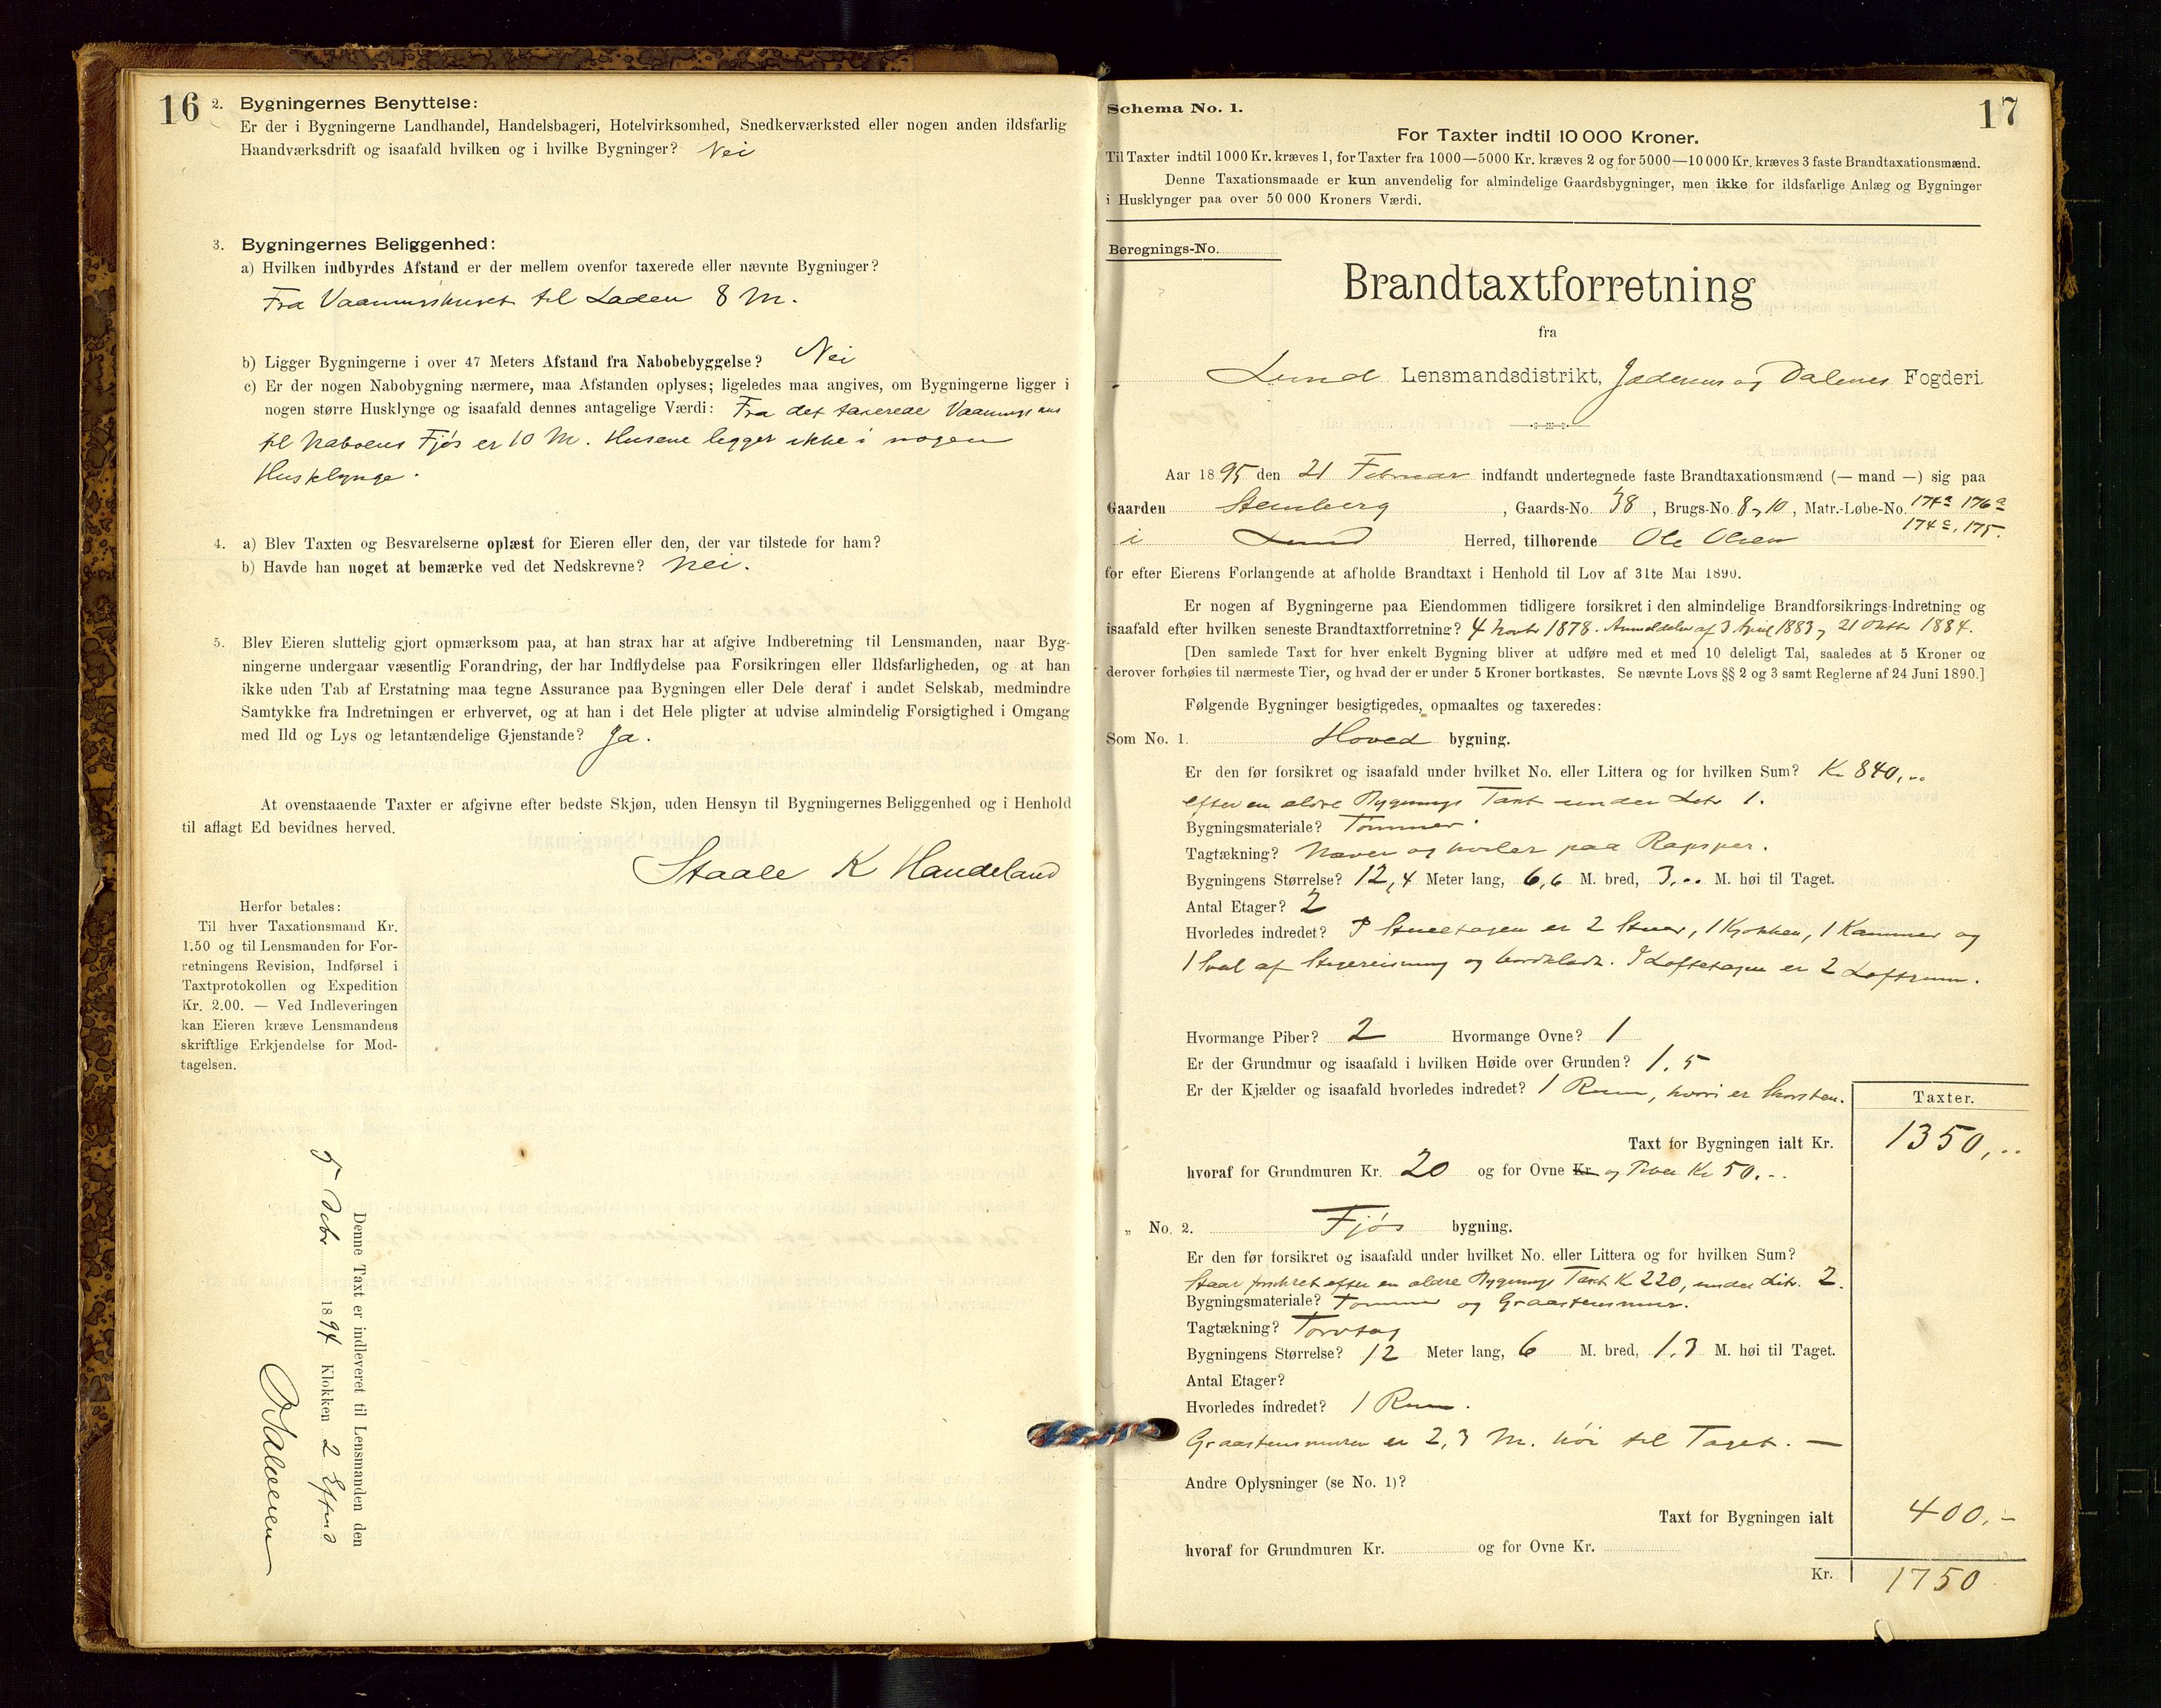 16
2. Bygningernes Benyttelse:
Er der i Bygningerne Landhandel, Handelsbageri, Hotelvirksomhed, Snedkerværksted eller nogen anden ildsfarlig
Haandværksdrift og isaafald hvilken og i hvilke Bygninger? Nei
3. Bygningernes Beliggenhed:
a) Hvilken indbyrdes Afstand er der mellem ovenfor taxerede eller nævnte Bygninger?
Fra Vaaningshuset til Laden 8 M.
b) Ligger Bygningerne i over 47 Meters Afstand fra Nabobebyggelse? Nei
c) Er der nogen Nabobygning nærmere, maa Afstanden oplyses; ligeledes maa angives, om Bygningerne ligger i
nogen større Husklynge og isaafald dennes antagelige Værdi: Fra det taxerede Vaaningshus
til Naboens Fjøs er 10 M. Husene ligger ikke i nogen
Husklynge.
4. a) Blev Taxten og Besvarelserne oplæst for Eieren eller den, der var tilstede for ham?
b) Havde han noget at bemærke ved det Nedskrevne? Nei.
5. Blev Eieren sluttelig gjort opmærksom paa, at han strax har at afgive Indberetning til Lensmanden, naar Byg-
ningerne undergaar væsentlig Forandring, der har Indflydelse paa Forsikringen eller Ildsfarligheden, og at han
ikke uden Tab af Erstatning maa tegne Assurance paa Bygningen eller Dele deraf i andet Selskab, medmindre
Samtykke fra Indretningen er erhvervet, og at han i det Hele pligter at udvise almindelig Forsigtighed i Omgang
med Ild og Lys og letantændelige Gjenstande? Ja.
At ovenstaaende Taxter er afgivne efter bedste Skjøn, uden Hensyn til Bygningernes Beliggenhed og i Henhold
til aflagt Ed bevidnes herved.
Staale K Handeland
Herfor betales:
Til hver Taxationsmand Kr.
1.50 og til Lensmanden for For-
retningens Revision, Indførsel i
Taxtprotokollen og Expedition
Kr. 2.00. — Ved Indleveringen
kan Eieren kræve Lensmandens
skriftlige Erkjendelse for Mod-
tagelsen.
Denne Taxt er indleveret til Lensmanden den
5 Debr 1894 Klokken 2 Eftmd
17
Schema No. 1.
For Taxter indtil 10 000 Kroner.
Til Taxter indtil 1000 Kr. kræves 1, for Taxter fra 1000—5000 Kr. kræves 2 og for 5000—10 000 Kr. kræves 3 faste Brandtaxationsmænd.
Denne Taxationsmaade er kun anvendelig for almindelige Gaardsbygninger, men ikke for ildsfarlige Anlæg og Bygninger
i Husklynger paa over 50 000 Kroners Værdi.
Beregnings-No.
Brandtaxtforretning
fra
Lund Lensmandsdistrikt, Jæderens og Dalenes Fogderi.
Aar 1895 den 21 Februar indfandt undertegnede faste Brandtaxationsmænd (— mand —) sig paa
Gaarden Stenberg, Gaards-No. 38, Brugs-No. 8, 10, Matr.-Løbe-No. 174a 176a
174c, 175.
i Lund Herred, tilhørende Ole Olsen
for efter Eierens Forlangende at afholde Brandtaxt i Henhold til Lov af 31te Mai 1890.
Er nogen af Bygningerne paa Eiendommen tidligere forsikret i den almindelige Brandforsikrings-Indretning og
isaafald efter hvilken seneste Brandtaxtforretning? 4 Novbr 1878. Anmeldelse af 3 April 1883, 21 Oktbr 1884.
[Den samlede Taxt for hver enkelt Bygning bliver at udføre med et med 10 deleligt Tal, saaledes at 5 Kroner og
derover forhøies til nærmeste Tier, og hvad der er under 5 Kroner bortkastes. Se nævnte Lovs §§ 2 og 3 samt Reglerne af 24 Juni 1890.]
Følgende Bygninger besigtigedes, opmaaltes og taxeredes:
Som No. 1. Hoved bygning.
Er den før forsikret og isaafald under hvilket No. eller Littera og for hvilken Sum? Kr 840,..
efter en ældre Bygnings Taxt under Litr 1.
Bygningsmateriale? Tømmer.
Tagtækning? Næver og hviler paa Rapsper.
Bygningens Størrelse? 12,4 Meter lang, 6,6 M. bred, 3,.. M. høi til Taget.
Antal Etager? 2
Hvorledes indredet? I Stuetagen er 2 Stuer, 1 Kjøkken, 1 Kammer og
1 Sval af Stavreisning og bordklædt. I Loftetagen er 2 Loftrum.
Hvormange Piber? 2 Hvormange Ovne? 1
Er der Grundmur og isaafald i hvilken Høide over Grunden? 1.5
Er der Kjælder og isaafald hvorledes indredet? 1 Rum, hvori er Skorsten.
Taxter.
Taxt for Bygningen ialt Kr. 1350,..
hvoraf for Grundmuren Kr. 20 og for Ovne Kr. og Piber Kr 50...
„ No. 2. Fjøs bygning.
Er den før forsikret og isaafald under hvilket No. eller Littera og for hvilken Sum?
Staar forsikret efter en ældre Bygnings Taxt Kr 220, under Litr. 2.
Bygningsmateriale? Tømmer og Graastensmur.
Tagtækning? Torvtag
Bygningens Størrelse? 12 Meter lang, 6 M. bred, 1.3 M. høi til Taget.
Antal Etager?
Hvorledes indredet? 1 Rum.
Graastensmuren er 2,3 M. høi til Taget. —
Andre Oplysninger (se No. 1)?
Taxt for Bygningen ialt 400.-
hvoraf for Grundmuren Kr. og for Ovne Kr.
Kr. 1750